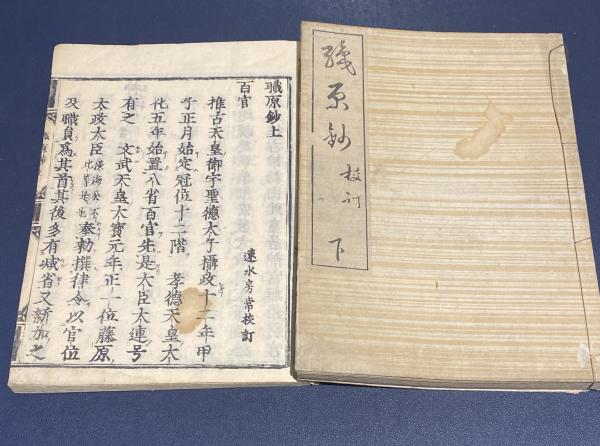 職原鈔 校訂 下
職原鈔上
百官
速水房常校訂
推古天皇御宇聖德太子攝政十二年甲
子正月始定冠位十二階 孝德天皇太
化五年始置八省百官先是大臣太連号
有之 文武天皇太寶元年正一位藤原
太政大臣淡海公不比等是也奉勅撰律令以官位
及職員爲其首其後多有減省又新加之